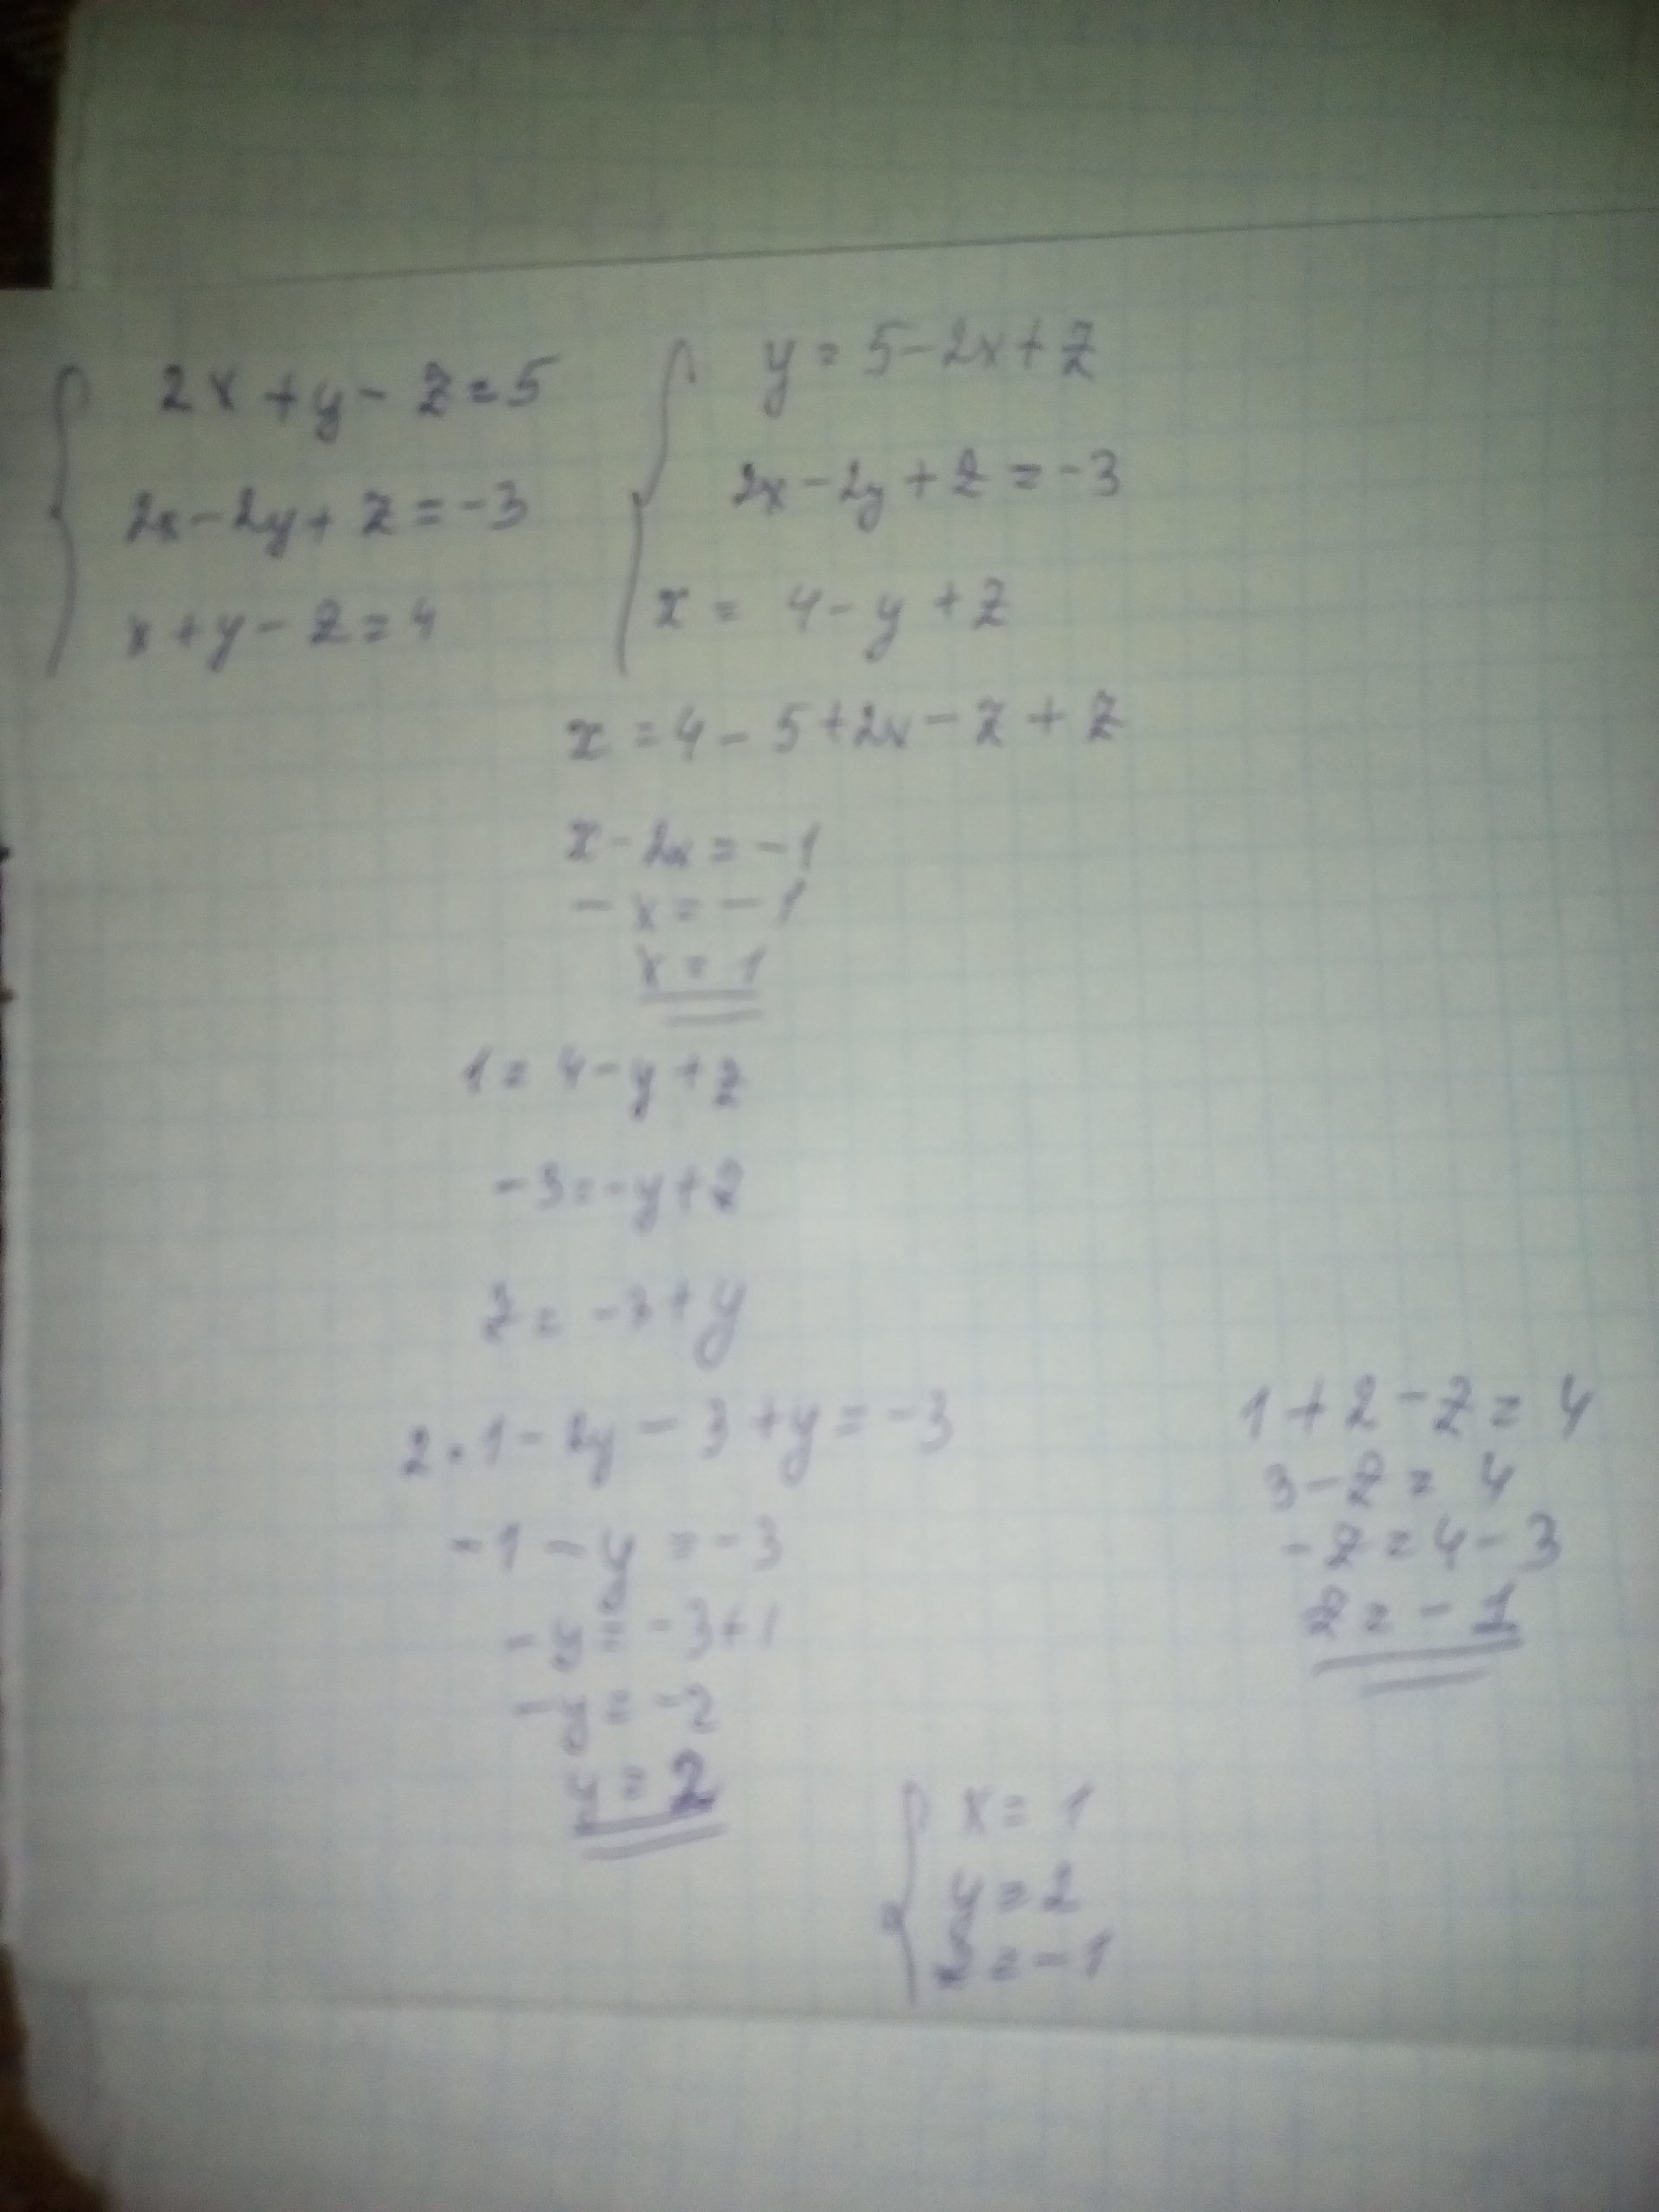 2x + y - z = 5
2x - 2y + z = -3
x + y - z = 4
y = 5 - 2x + z
2x - 2y + z = -3
x = 4 - y + z
x = 4 - 5 + 2x - z + z
x - 2x = -1
- x = - 1
x = 1
1 = 4 - y + z
- 3 = - y + z
z = - 3 + y
2 · 1 - 2y - 3 + y = - 3
- 1 - y = - 3
- y = - 3 + 1
- y = - 2
y = 2
1 + 2 - z = 4
3 - z = 4
- z = 4 - 3
z = - 1
x = 1
y = 2
z = - 1